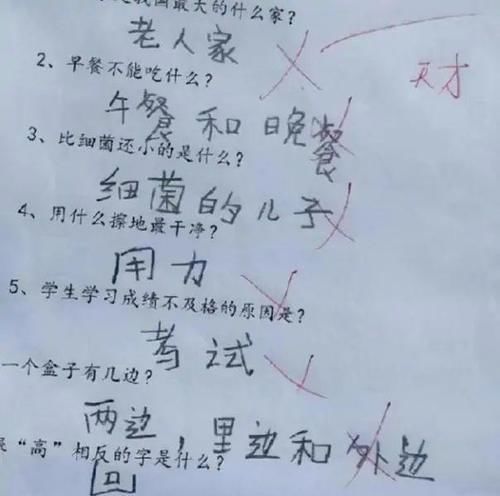 我国最大的什么家？
老人家
天才
2、早餐不能吃什么？
午餐和晚餐
3、比细菌还小的是什么？
细菌的儿子
4、用什么擦地最干净？
用力
5、学生学习成绩不及格的原因是？
考试
一个盒子有几边？
两边，里边和外边
“高”相反的字是什么？